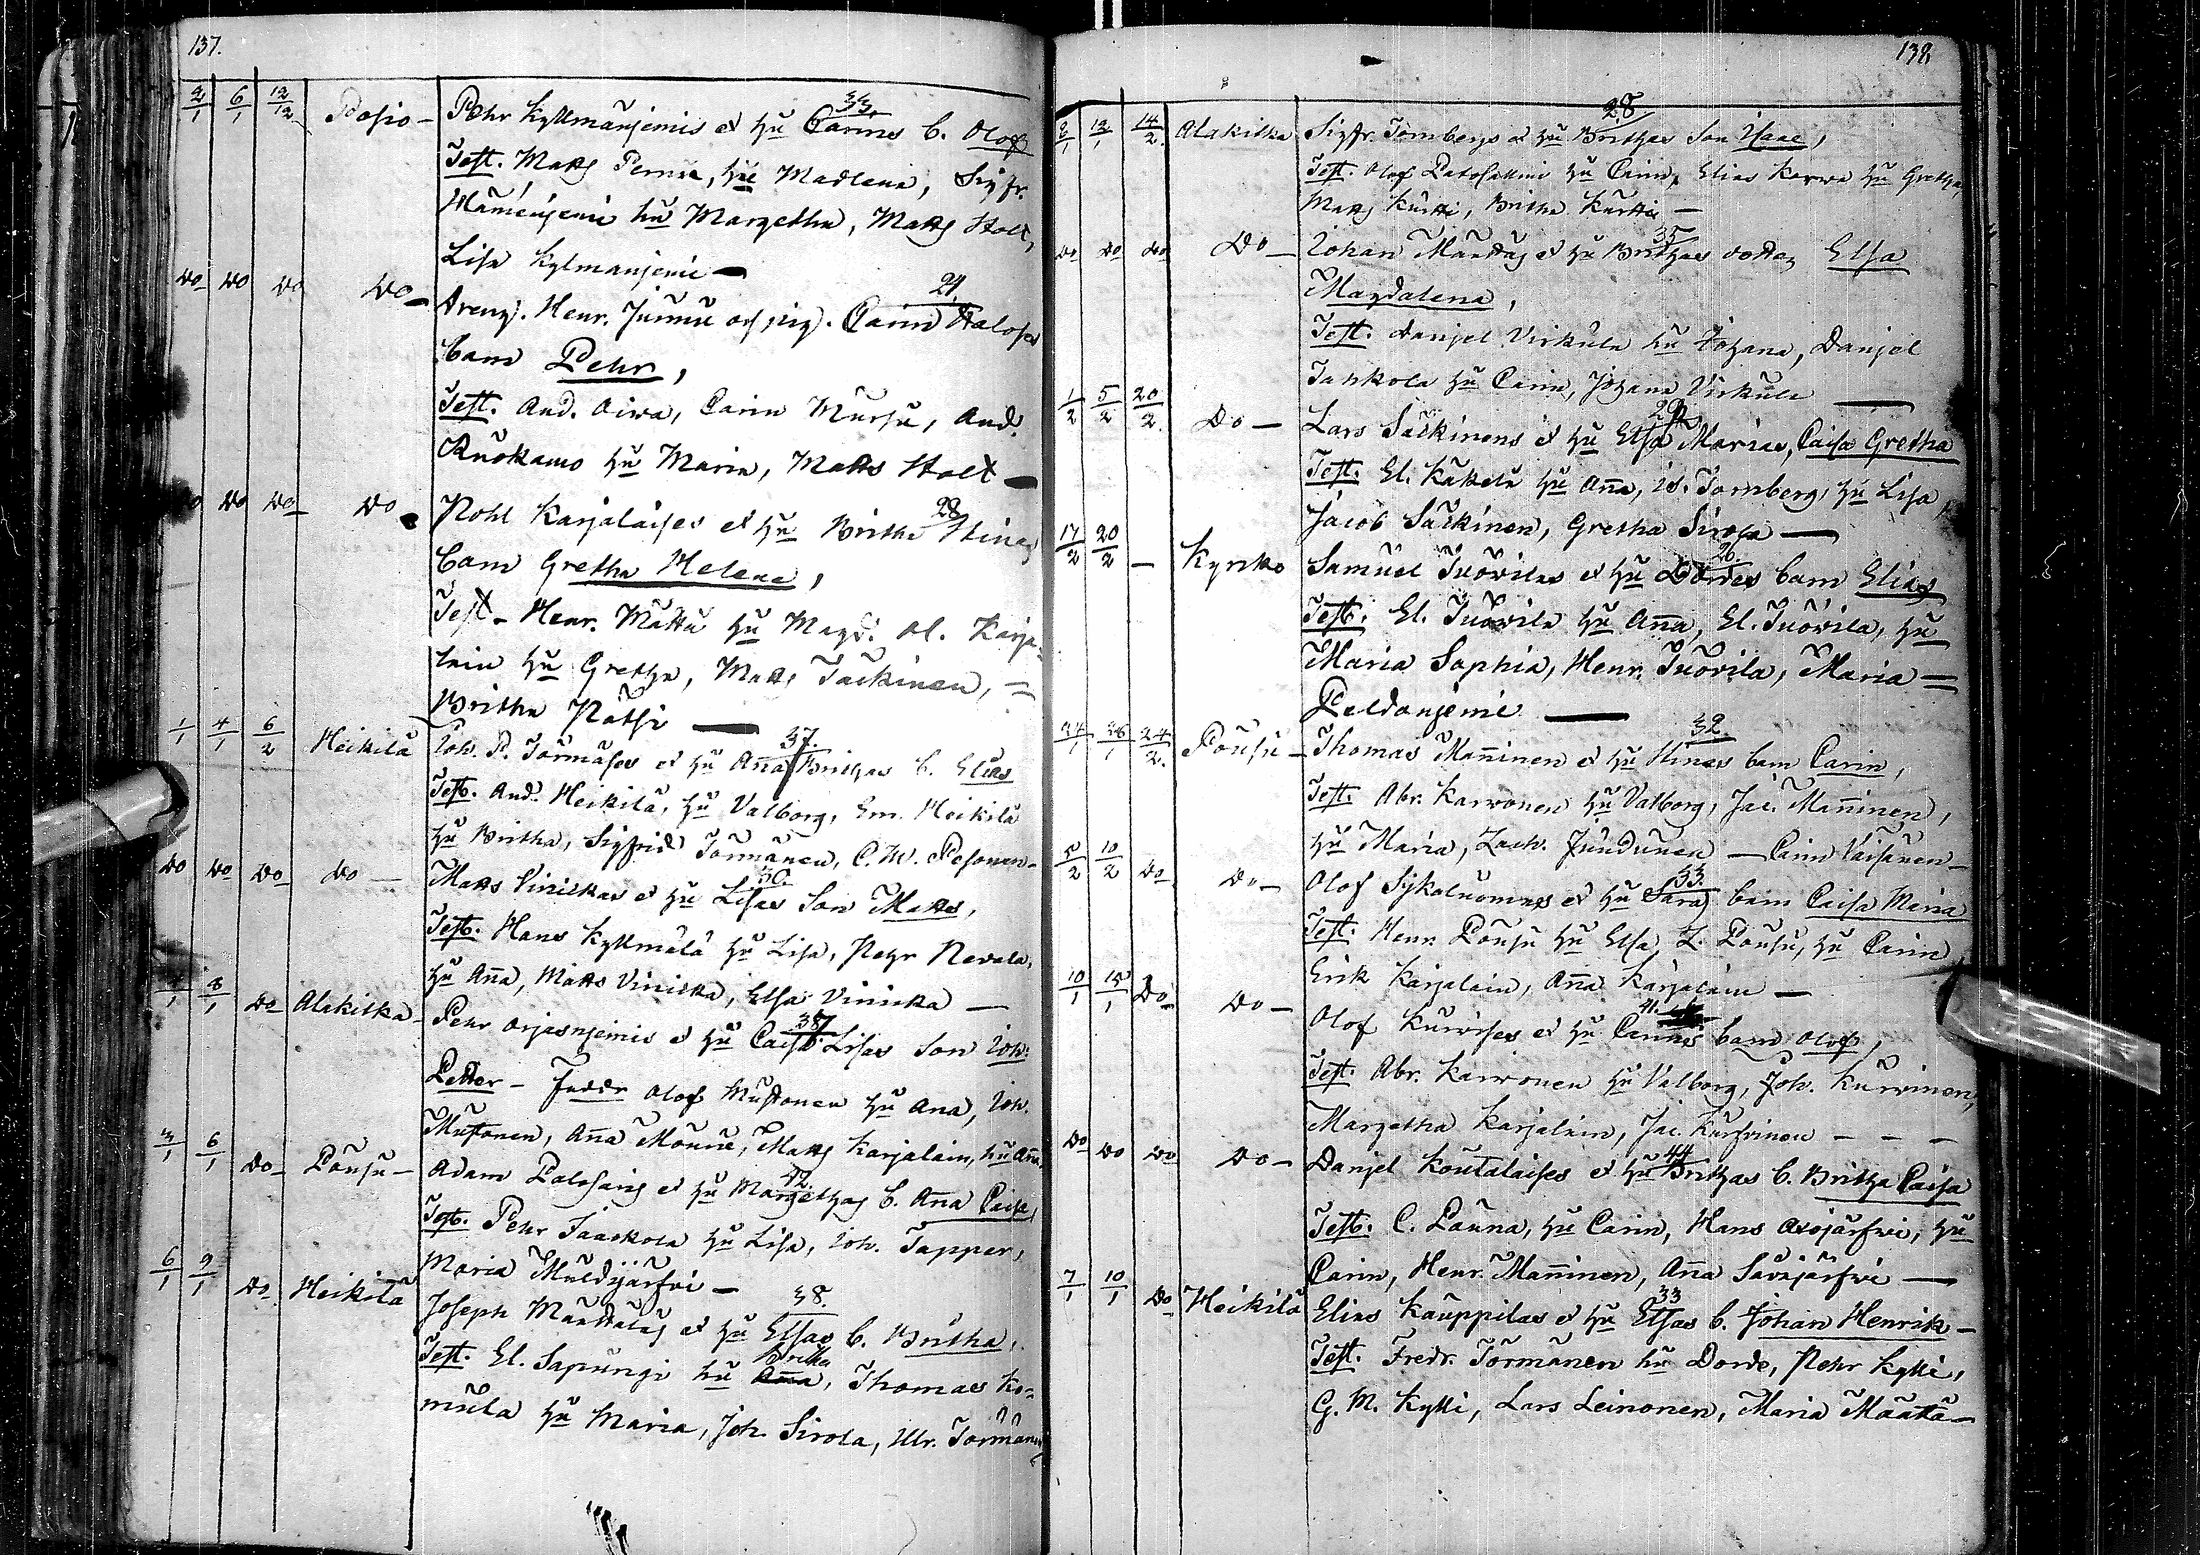 137.
2/1 6/1 12/12 Posio - Pehr Kyllmänjemis et hu Carins b. Olof 33.
Test. Matts Pernu, hu Madlena, Sigfr.
Hämenjemi hu Margetha, Matts Holt,
Lisa Kylmänjemi —
Do Do Do Do - Drengj. Henr. Junnu och pig. Carin Halosa 24.
barn Pehr,
Test. And. Oiva, Carin Mursu, And.
Ruokamo hu Maria, Matts Holt —
Do Do Do Do Pohl Karjalaises et hu Britha Stinas 28
barn Gretha Helena,
Test. Henr. Måttu hu Magd. Ol. Karja-
lain hu Gretha, Matts Säckinen, =
Britha Pätsi —
1/1 4/1 6/2 Heikilä Joh. P. Törmäses et hu Anna Brithas b. Elias 37.
Test. And. Heikilä, hu Valborg, Em. Heikilä
hu Britha, Sigfrid Törmänen, C. M. Pesonen -
Do Do Do Do — Matts Viniskas et hu Lisas Son Matts, 30.
Test. Hans Kyllmälä hu Lisa, Pehr Nevala,
hu Anna, Matts Viniska, Elsa Viniska —
4/1 8/1 Do Alakitka - Pehr Orjasnjemis et hu Caisa Lisas Son Joh. 37
Petter - Faddr Olof Mustonen hu Ana, Joh.
Mustonen, Anna Mouru, Matts Karjalain, hu Anna,
3/1 6/1 Do Pousu - Adam Palosaris et hu Margethas b. Anna Caisa, 42.
Test. Pehr Jaaskola hu Lisa, Joh. Tapper,
Maria Muldijärfvi —
6/1 9/1 Do Heikilä Joseph Määttäläs et hu Elsas b. Britha, 38.
Test. El. Sapungi hu Britha, Thomas Ko=
mula hu Maria, Joh. Sirola, Ulr. Törmänen
138
8/1 12/1 14/2 Alakitka Sigfr. Törnbergs et hu Brithas Son Isaac, 28
Test. Olof Palosaari hu Carin, Elias Karwa hu Gretha,
Matts Kurtti, Britha Kurtti —
Do Do Do Do — Johan Määttäs et hu Brithas dotter Elsa 35
Magdalena,
Test. Danjel Virkula hu Johana, Danjel
Jankola hu Carin, Johana Virkula —
1/2 5/2 20/2 Do — Lars Säckinens et hu Elsa Marias, Caisa Gretha 29
Test. El. Käkelä hu Anna, Is. Tornberg, hu Lisa,
Jacob Säckinen, Gretha Sirola —
17/2 20/2 — Kyrko Samuel Tuovilas et hu Dordes barn Elias 26.
Test. El. Tuovila hu Anna, El. Tuovila, hu
Maria Sophia, Henr. Tuovila, Maria —
Peldonjemi —
24/1 26/1 24/2 Pousu - Thomas Manninen et hu Stinas barn Carin, 32.
Test. Abr. Karwonen hu Valborg, Jac. Manninen,
hu Maria, Zach. Jundunen — Carin Väisänen —
5/2 10/2 Do Do - Olof Sykaluomas et hu Saras barn Caisa Maria 33.
Test. Henr. Pousu hu Elsa, Z. Pousu, hu Carin,
Erik Karjalain, Anna Karjalain —
10/1 15/1 Do Do - Olof Kurvises et hu Carins barn Olof, 41.
Test. Abr. Karwonen hu Valborg, Joh. Kurvinen,
Margetha Karjalain, Jac. Kurfvinen - - -
Do Do Do Do - Danjel Koutalaises et hu Brithas b. Britha Caisa 44
Test. C. Launa, hu Carin, Hans Axojärfvi, hu
Carin, Henr. Manninen, Anna Säväjärfvi —
7/1 10/1 Do Heikilä Elias Kauppilas et hu Elsas b. Johan Henrik - 33
Test. Fredr. Törmänen hu Dorde, Pehr Kylli,
G. M. Kylli, Lars Leinonen, Maria Määttä —